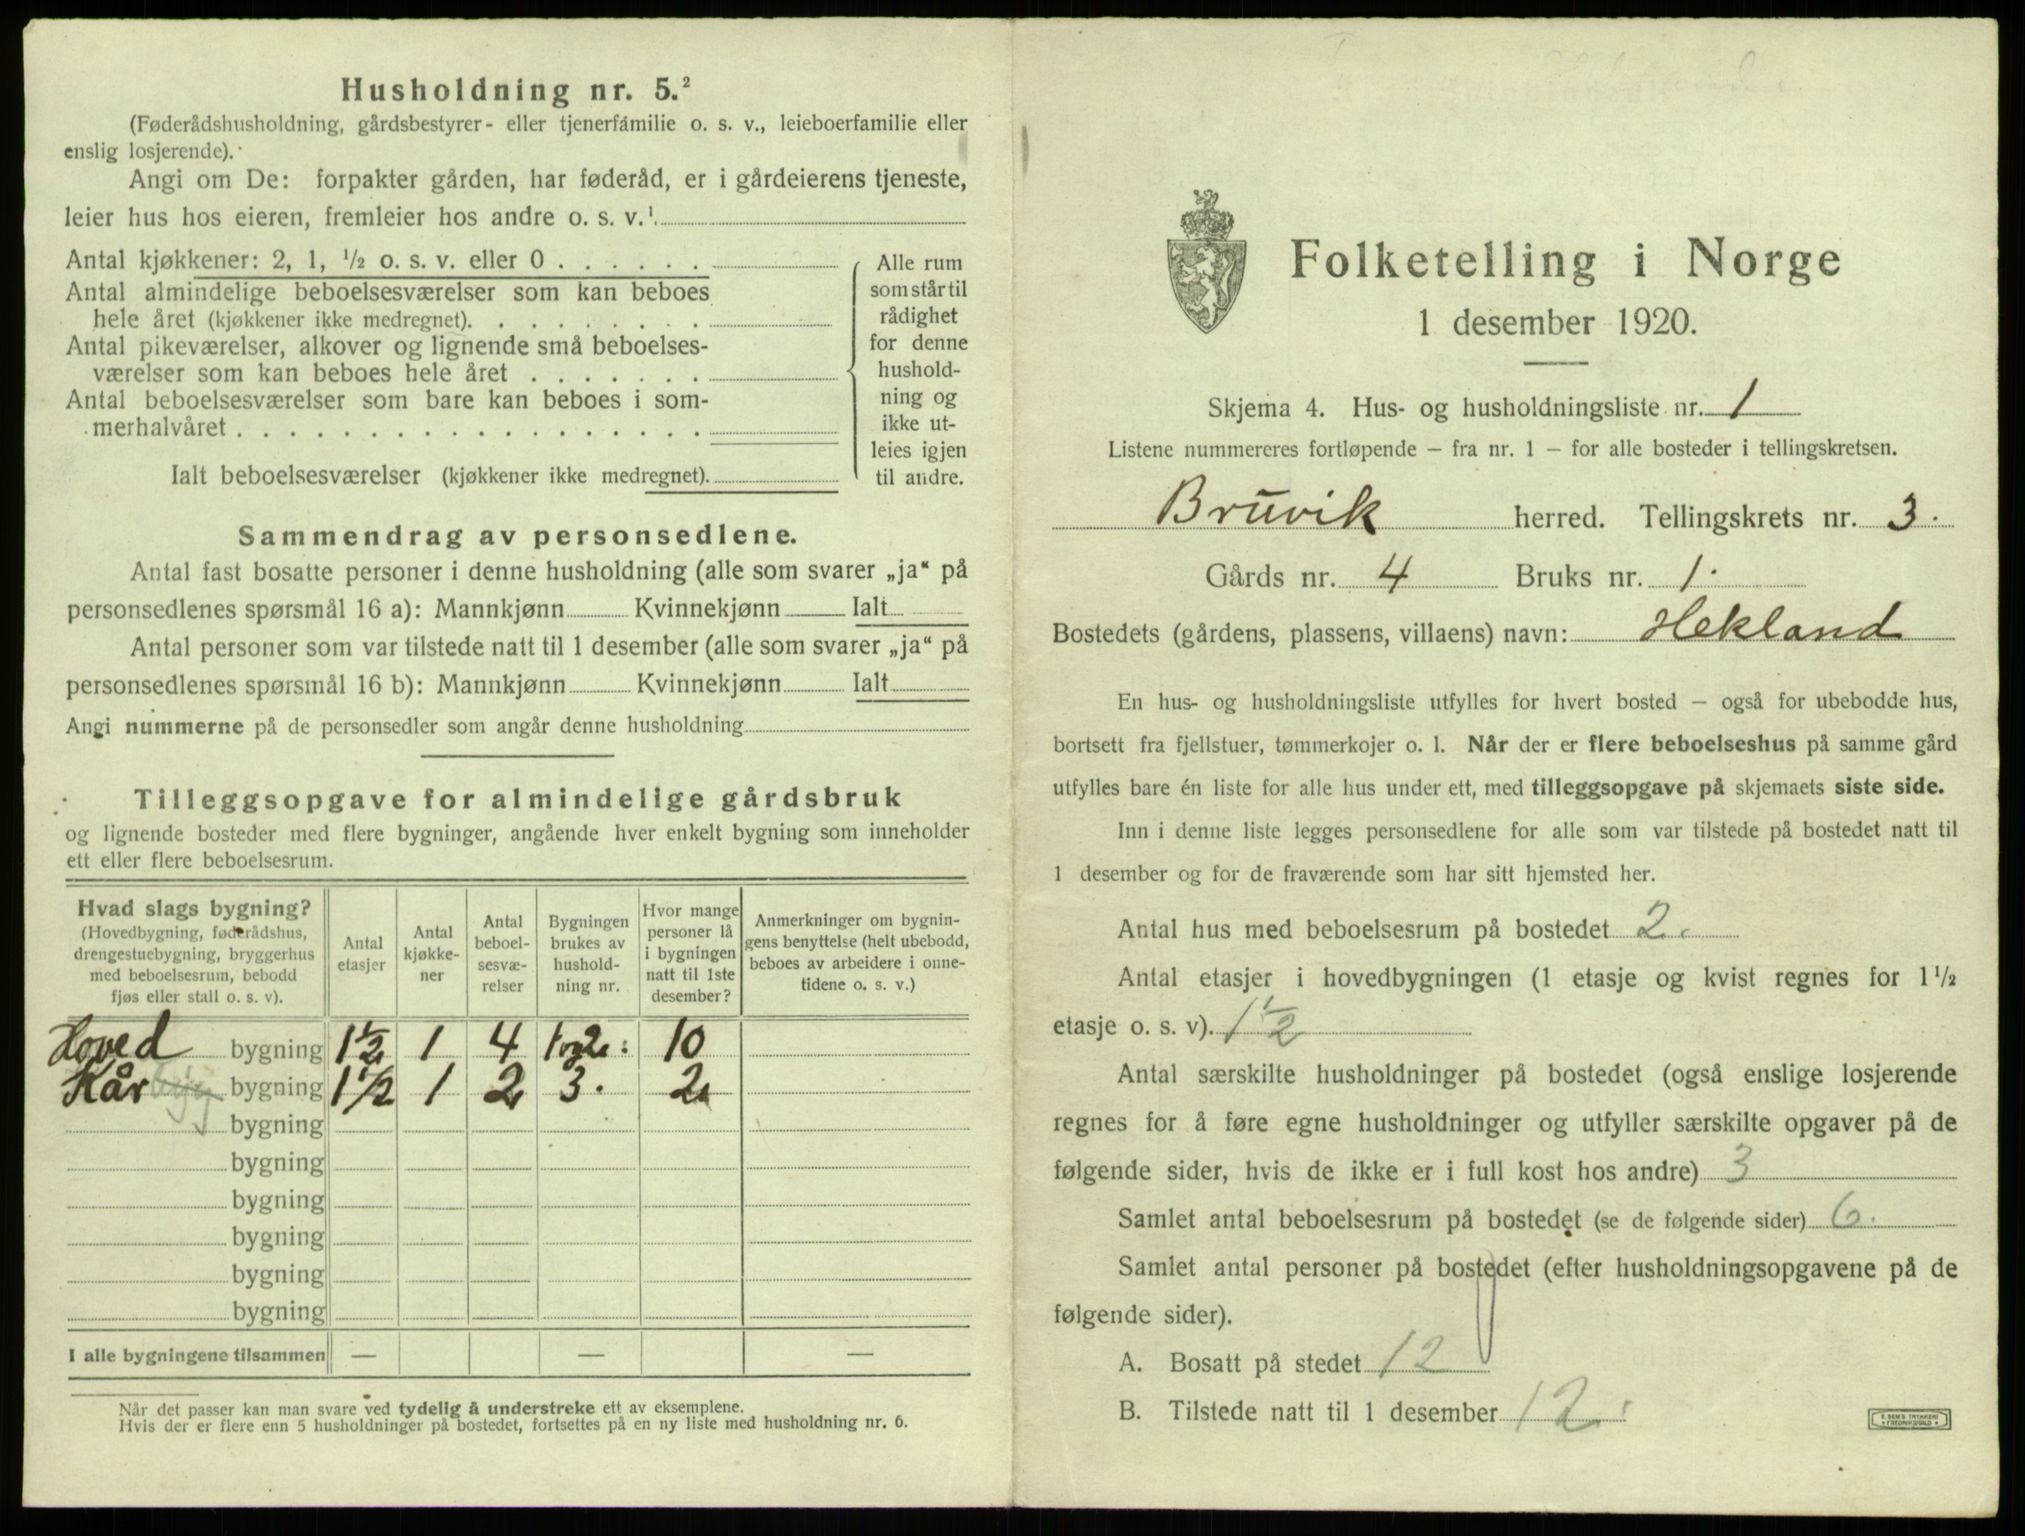 Husholdning nr. 5.²
(Føderådshusholdning, gårdsbestyrer- eller tjenerfamilie o. s. v., leieboerfamilie eller
enslig losjerende).
Angi om De: forpakter gården, har føderåd, er i gårdeierens tjeneste,
leier hus hos eieren, fremleier hos andre o. s. v.¹
Antal kjøkkener: 2, 1, ½ o. s. v. eller 0 . . . . . .
Antal almindelige beboelsesværelser som kan beboes
hele året (kjøkkener ikke medregnet). . . . . . . . .
Antal pikeværelser, alkover og lignende små beboelses-
værelser som kan beboes hele året . . . . . . .
Antal beboelsesværelser som bare kan beboes i som-
merhalvåret . . . . . . . . . . . . . . . . . .
Ialt beboelsesværelser (kjøkkener ikke medregnet).
Alle rum
som står til
rådighet
for denne
hushold-
ning og
ikke ut-
leies igjen
til andre.
Sammendrag av personsedlene.
Antal fast bosatte personer i denne husholdning (alle som svarer „ja“ på
personsedlenes spørsmål 16 a): Mannkjønn Kvinnekjønn Ialt
Antal personer som var tilstede natt til 1 desember (alle som svarer „ja“ på
personsedlenes spørsmål 16 b): Mannkjønn Kvinnekjønn Ialt
Angi nummerne på de personsedler som angår denne husholdning
Tilleggsopgave for almindelige gårdsbruk
og lignende bosteder med flere bygninger, angående hver enkelt bygning som inneholder
ett eller flere beboelsesrum.
Hvad slags bygning?
(Hovedbygning, føderådshus,
drengestuebygning, bryggerhus
med beboelsesrum, bebodd
fjøs eller stall o. s. v).
Antal
etasjer
Antal
kjøkke-
ner
Antal
beboel-
sesvæ-
relser
Bygningen
brukes av
hushold-
ning nr.
Hvor mange
personer lå
i bygningen
natt til 1ste
desember?
Anmerkninger om bygnin-
gens benyttelse (helt ubebodd,
beboes av arbeidere i onne-
tidene o. s. v.)
Hoved bygning 1½ 1 4 1 og 2. 10
Kår bygning 1½ 1 2 3. 2
bygning
bygning
bygning
bygning
bygning
bygning
I alle bygningene tilsammen — — —
Når det passer kan man svare ved tydelig å understreke ett av eksemplene.
Hvis der er flere enn 5 husholdninger på bostedet, fortsettes på en ny liste med husholdning nr. 6.
Folketelling i Norge
1 desember 1920.
Skjema 4. Hus- og husholdningsliste nr. 1
Listene nummereres fortløpende — fra nr. 1 — for alle bosteder i tellingskretsen.
Bruvik herred. Tellingskrets nr. 3.
Gårds nr. 4 Bruks nr. 1.
Bostedets (gårdens, plassens, villaens) navn: Hekland
En hus- og husholdningsliste utfylles for hvert bosted — også for ubebodde hus,
bortsett fra fjellstuer, tømmerkojer o. l. Når der er flere beboelseshus på samme gård
utfylles bare én liste for alle hus under ett, med tilleggsopgave på skjemaets siste side.
Inn i denne liste legges personsedlene for alle som var tilstede på bostedet natt til
1 desember og for de fraværende som har sitt hjemsted her.
Antal hus med beboelsesrum på bostedet 2.
Antal etasjer i hovedbygningen (1 etasje og kvist regnes for 1½
etasje o. s. v). 1½
Antal særskilte husholdninger på bostedet (også enslige losjerende
regnes for å føre egne husholdninger og utfyller særskilte opgaver på de
følgende sider, hvis de ikke er i full kost hos andre) 3
Samlet antal beboelsesrum på bostedet (se de følgende sider) 6.
Samlet antal personer på bostedet (efter husholdningsopgavene på de
følgende sider).
A. Bosatt på stedet 12
B. Tilstede natt til 1 desember 12.
E. SEM'S TRYKKERI
FREDRIKSHALD